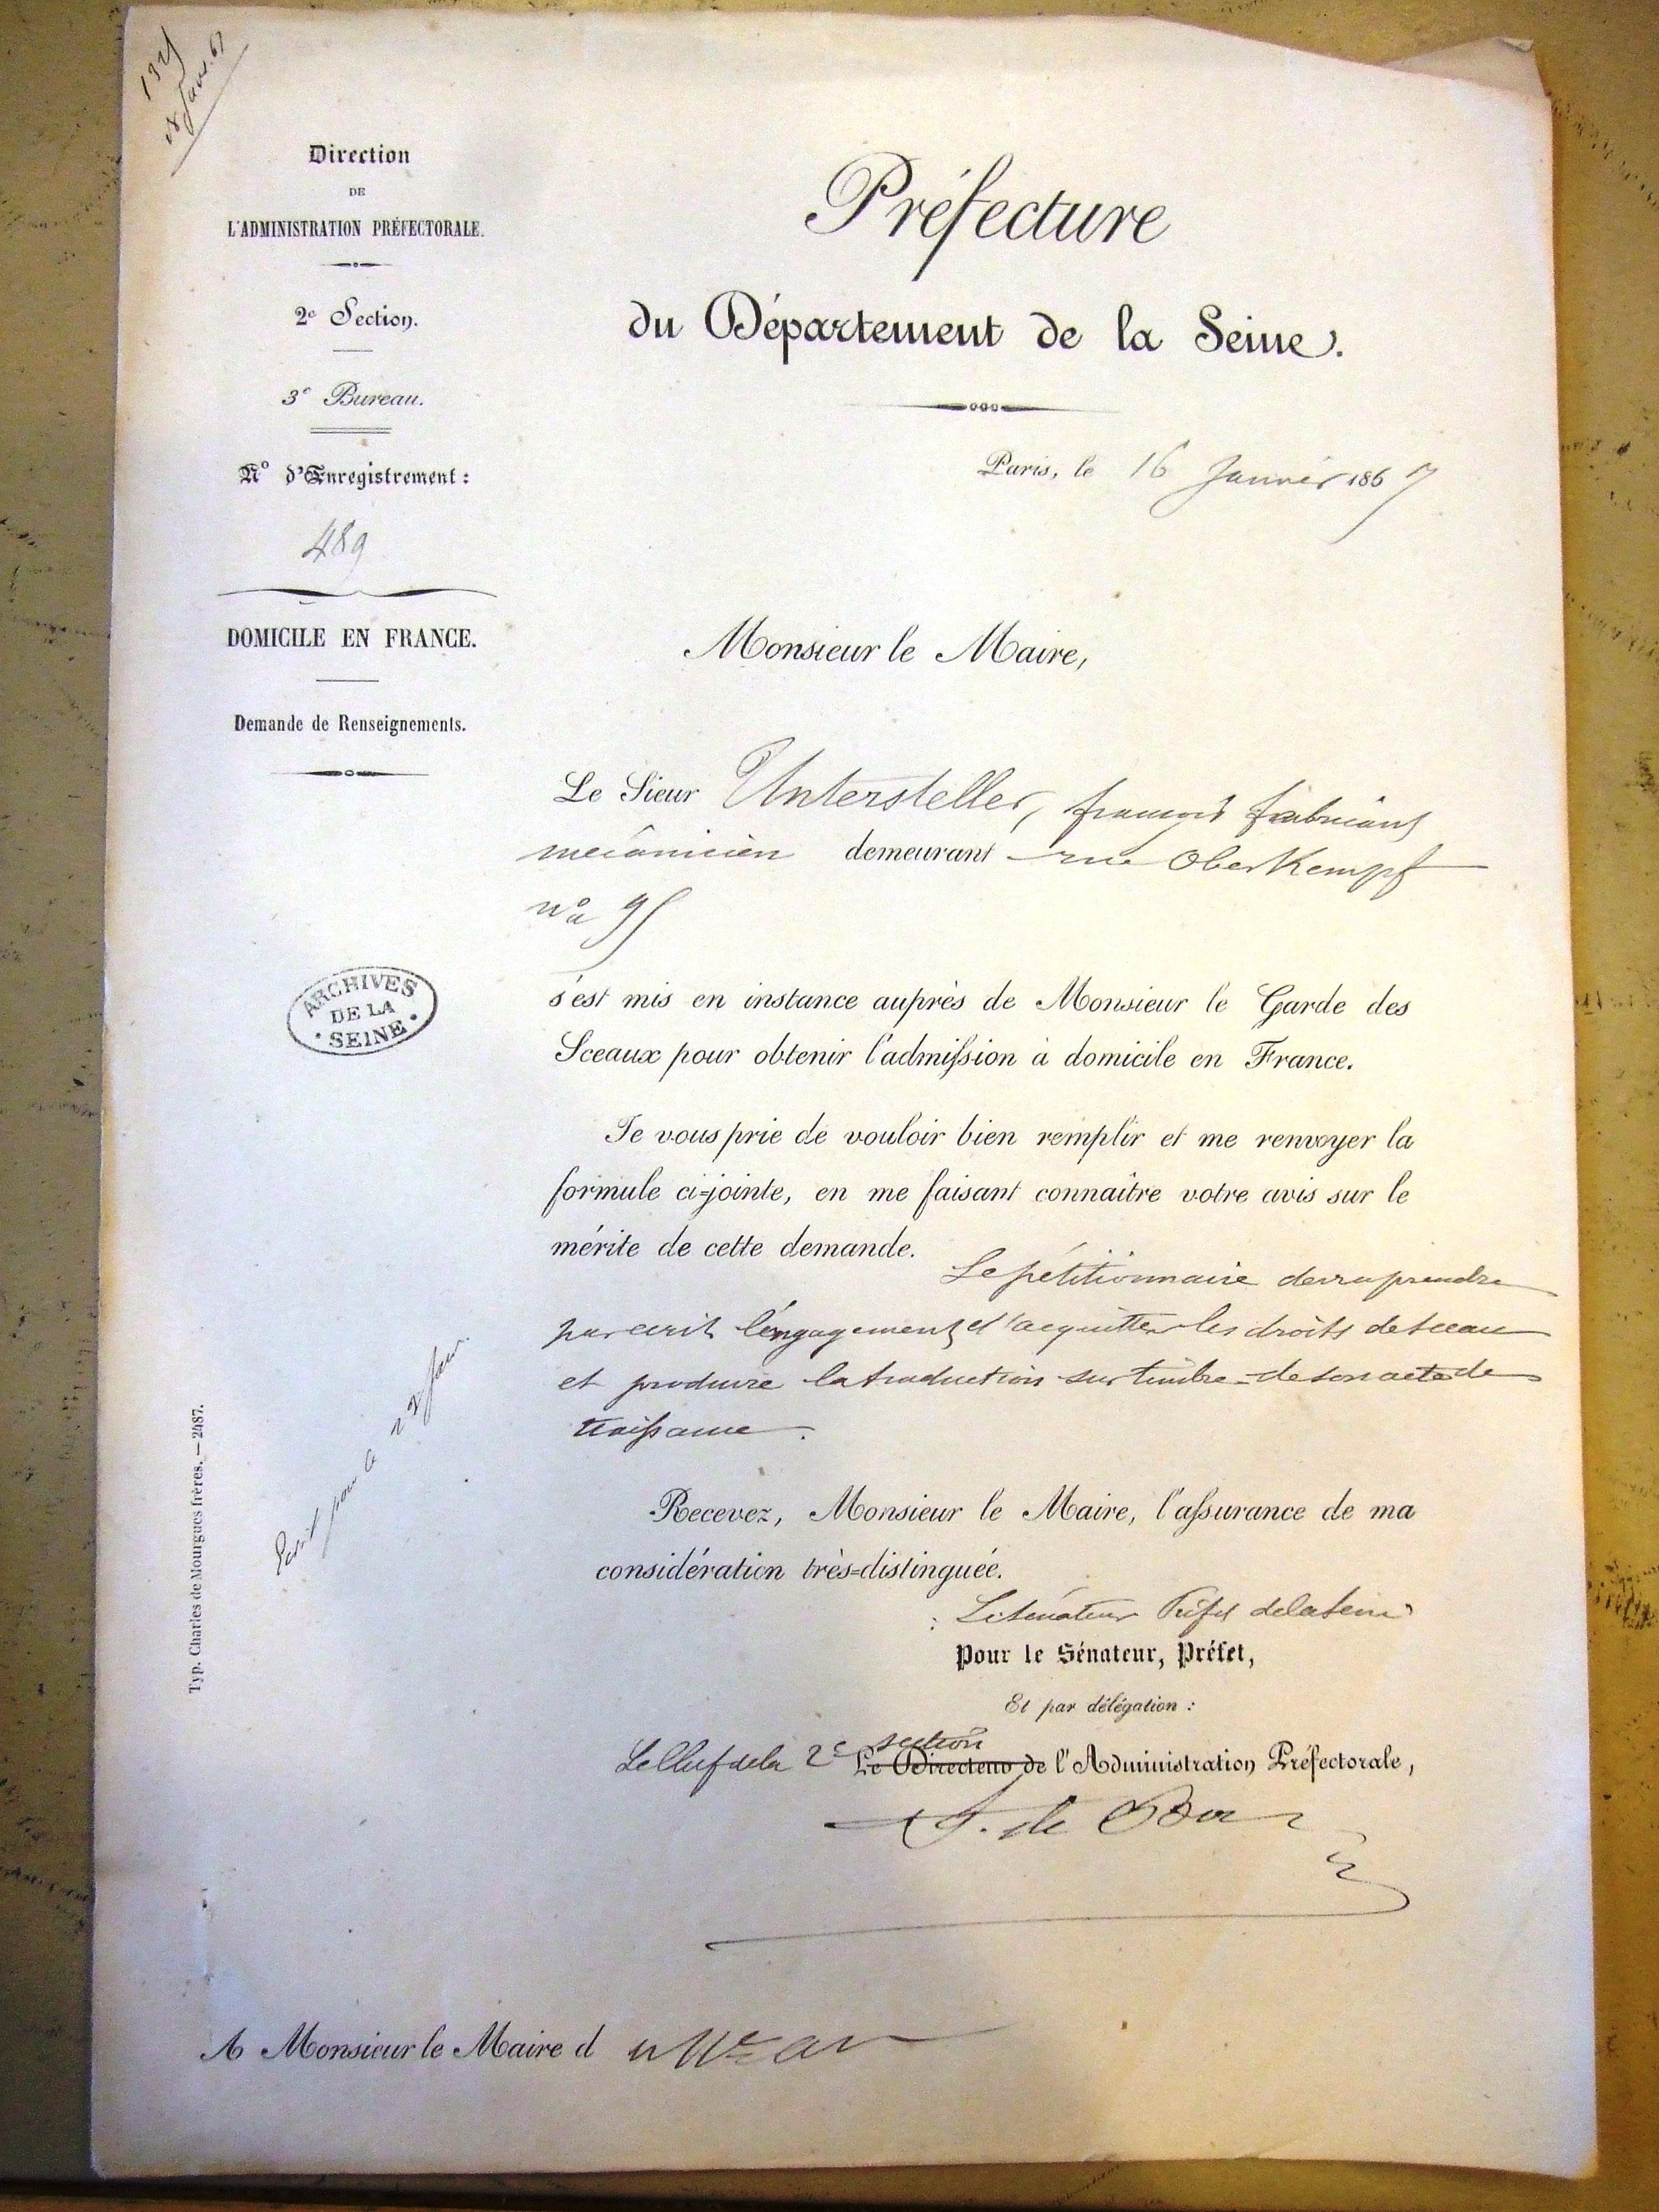 18 Janv. 67
Direction
DE
L'ADMINISTRATION PRÉFECTORALE.
2e Section.
3e Bureau.
N° d'Enregistrement :
489
DOMICILE EN FRANCE.
Demande de Renseignements.
ARCHIVES
DE LA
SEINE
Typ. Charles de Mourgues frères. — 2487.
Ecrit pour le 22 Janv.
Préfecture
du Département de la Seine.
Paris, le 16 Janvier 1867
Monsieur le Maire,
Le Sieur Untersteller, françois fabricant
mécanicien demeurant rue Oberkempf
no 95
s'est mis en instance auprès de Monsieur le Garde des
Sceaux pour obtenir l'admission à domicile en France.
Je vous prie de vouloir bien remplir et me renvoyer la
formule ci-jointe, en me faisant connaître votre avis sur le
mérite de cette demande. Le pétitionnaire devra prendre
par écrit l'engagement d'acquitter les droits de sceau
et produire la traduction sur timbre de son acte de
naissance.
Recevez, Monsieur le Maire, l'assurance de ma
considération très-distinguée.
Le Sénateur Préfet de la Seine
Pour le Sénateur, Préfet,
Et par délégation :
Le Chef de la 2e section Le Directeur de l'Administration Préfectorale,
A Monsieur le Maire d u XIe arr